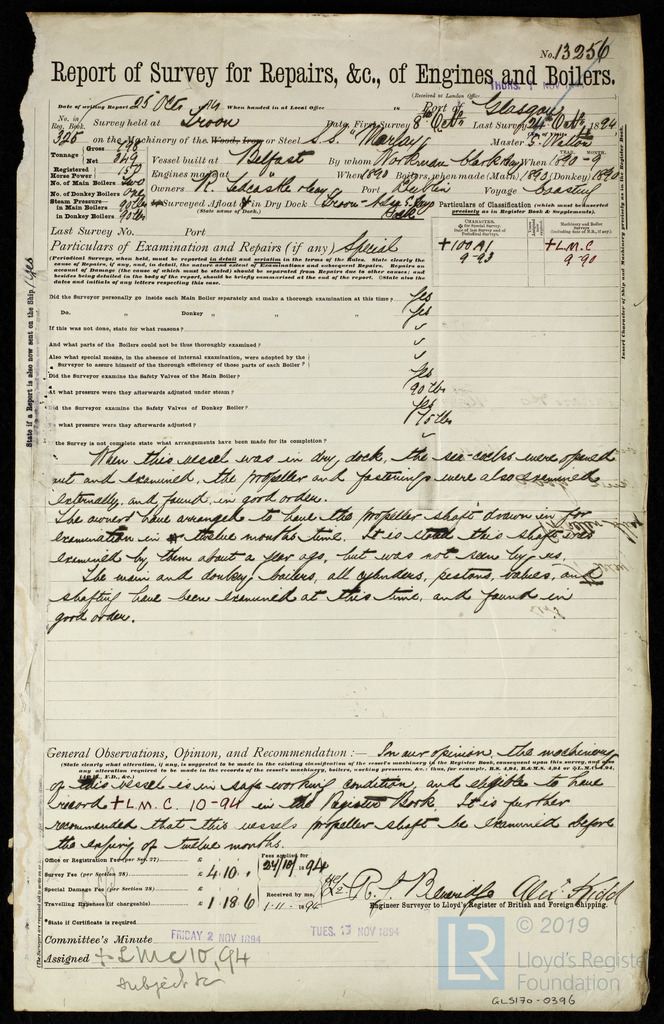 No. 13256
Report of Survey for Repairs, &c., of Engines and Boilers.
THURS. 1 NOV 1894
(Received at London Office
Date of writing Report 25 Oct 94 When handed in at Local Office Port of Glasgow
No. in Reg. Book. Survey held at Troon Date, First Survey 8th Octr Last Survey 24 Octr 1894
325 on the Machinery of the Wood, Iron or Steel S.S. "Marley" Master J. Watton
Tonnage Gross 798
Net 349
Vessel built at Belfast By whom Workman Clark &Co When 1890-9
Registered Horse Power 150
Engines made at " When 1890 Boilers, when made (Main) 1890 (Donkey) 1890
No. of Main Boilers two
No. of Donkey Boilers one
Owners R. Tedcastle & Co Port Dublin Voyage Coasting
Steam Pressure in Main Boilers 90 lbs
in Donkey Boilers 90 lbs
Surveyed Afloat & in Dry Dock Troon
(State name of Dock.)
Particulars of Classification (which must be inserted precisely as in Register Book & Supplements).
Last Survey No. Port
CHARACTER.
+100A1
9-93
+LMC
9-90
Particulars of Examination and Repairs (if any) Special
(Periodical Surveys, when held, must be reported in detail and seriatim in the terms of the Rules. State clearly the cause of Repairs, if any, and, in detail, the nature and extent of Examinations and subsequent Repairs. Repairs on account of Damage (the cause of which must be stated) should be separated from Repairs due to other causes; and besides being detailed in the body of the report, should be briefly summarised at the end of the report. State also the dates and initials of any letters respecting this case.)
Did the Surveyor personally go inside each Main Boiler separately and make a thorough examination at this time? Yes
Do. " Donkey " " " Yes
If this was not done, state for what reasons?
And what parts of the Boilers could not be thus thoroughly examined?
Also what special means, in the absence of internal examination, were adopted by the Surveyor to assure himself of the thorough efficiency of those parts of each Boiler?
Did the Surveyor examine the Safety Valves of the Main Boiler? Yes
At what pressure were they afterwards adjusted under steam? 90 lbs
Did the Surveyor examine the Safety Valves of Donkey Boiler? Yes
To what pressure were they afterwards adjusted? 75 lbs
If the Survey is not complete state what arrangements have been made for its completion?
When this vessel was in dry dock, the sea-cocks were opened
out and examined, the propeller and fastenings were also examined
externally, and found in good order.
The owners have arranged to have the propeller shaft drawn in for
examination in twelve months time. It is stated this shaft was
examined by them about a year ago, but was not seen by us.
The main and donkey boilers, all cylinders, pistons, valves, and
shafting have been examined at this time, and found in
good order.
General Observations, Opinion, and Recommendation:— In our opinion the machinery
(State clearly what alteration, if any, is suggested to be made in the existing classification of the vessel's machinery in the Register Book, consequent upon this survey, and also any alteration required to be made in the records of the vessel's machinery, boilers, working pressures, &c.; thus, for example, B.S. 4,94, B.&M.S. 4,94 or L.M.C. 4,94, F.D., &c.)
of this vessel is in safe working condition, and eligible to have
record +L.M.C. 10-94 in the Register Book. It is further
recommended that this vessels propeller shaft be examined before
the expiry of twelve months.
Office or Registration Fee (per Sec. 27) £
Survey Fee (per Section 28) £ 4.10.
Special Damage Fee (per Section 28) £
Travelling Expenses (if chargeable) £ 1.18.6
Fees applied for 24/10/1894
Received by me, 1-11-1894
R. J. Beveridge Alex. Kidd
Engineer Surveyor to Lloyd's Register of British and Foreign Shipping.
*State if Certificate is required
Committee's Minute FRIDAY 2 NOV 1894 TUES. 13 NOV 1894
Assigned +LMC 10,94
subject to
State if a Report is also now sent on the Ship. Yes
Insert Character of Ship and Machinery precisely as in the Register Book.
LR
© 2019
Lloyd's Register
Foundation
GLS170-0396